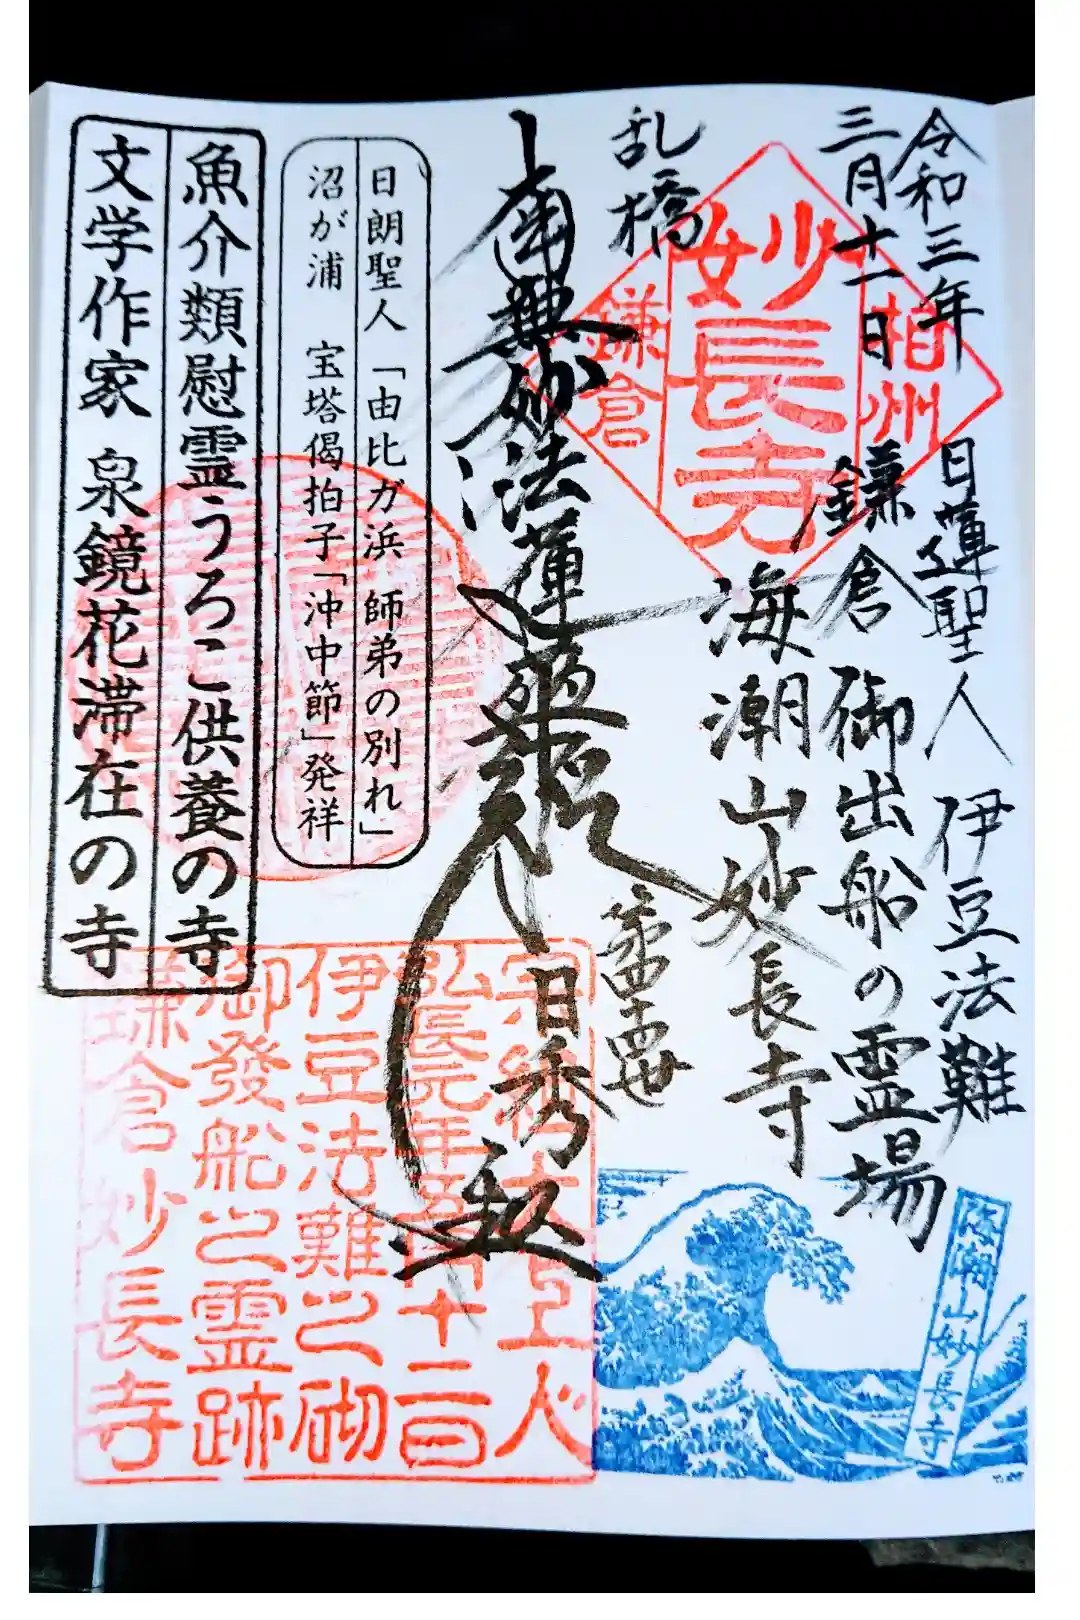 令和三年
三月十一日
日蓮聖人 伊豆法難
鎌倉 御出船の霊場
海潮山妙長寺
乱橋
相州
妙長寺
鎌倉
南無妙法蓮華経
日秀
日朗聖人「由比ガ浜 師弟の別れ」
沼が浦 宝塔偈拍子「沖中節」発祥
魚介類慰霊うろこ供養の寺
文学作家 泉鏡花滞在の寺
弘長元年五月十二日
伊豆法難之砌
御發船之霊跡
鎌倉妙長寺
海潮山妙長寺